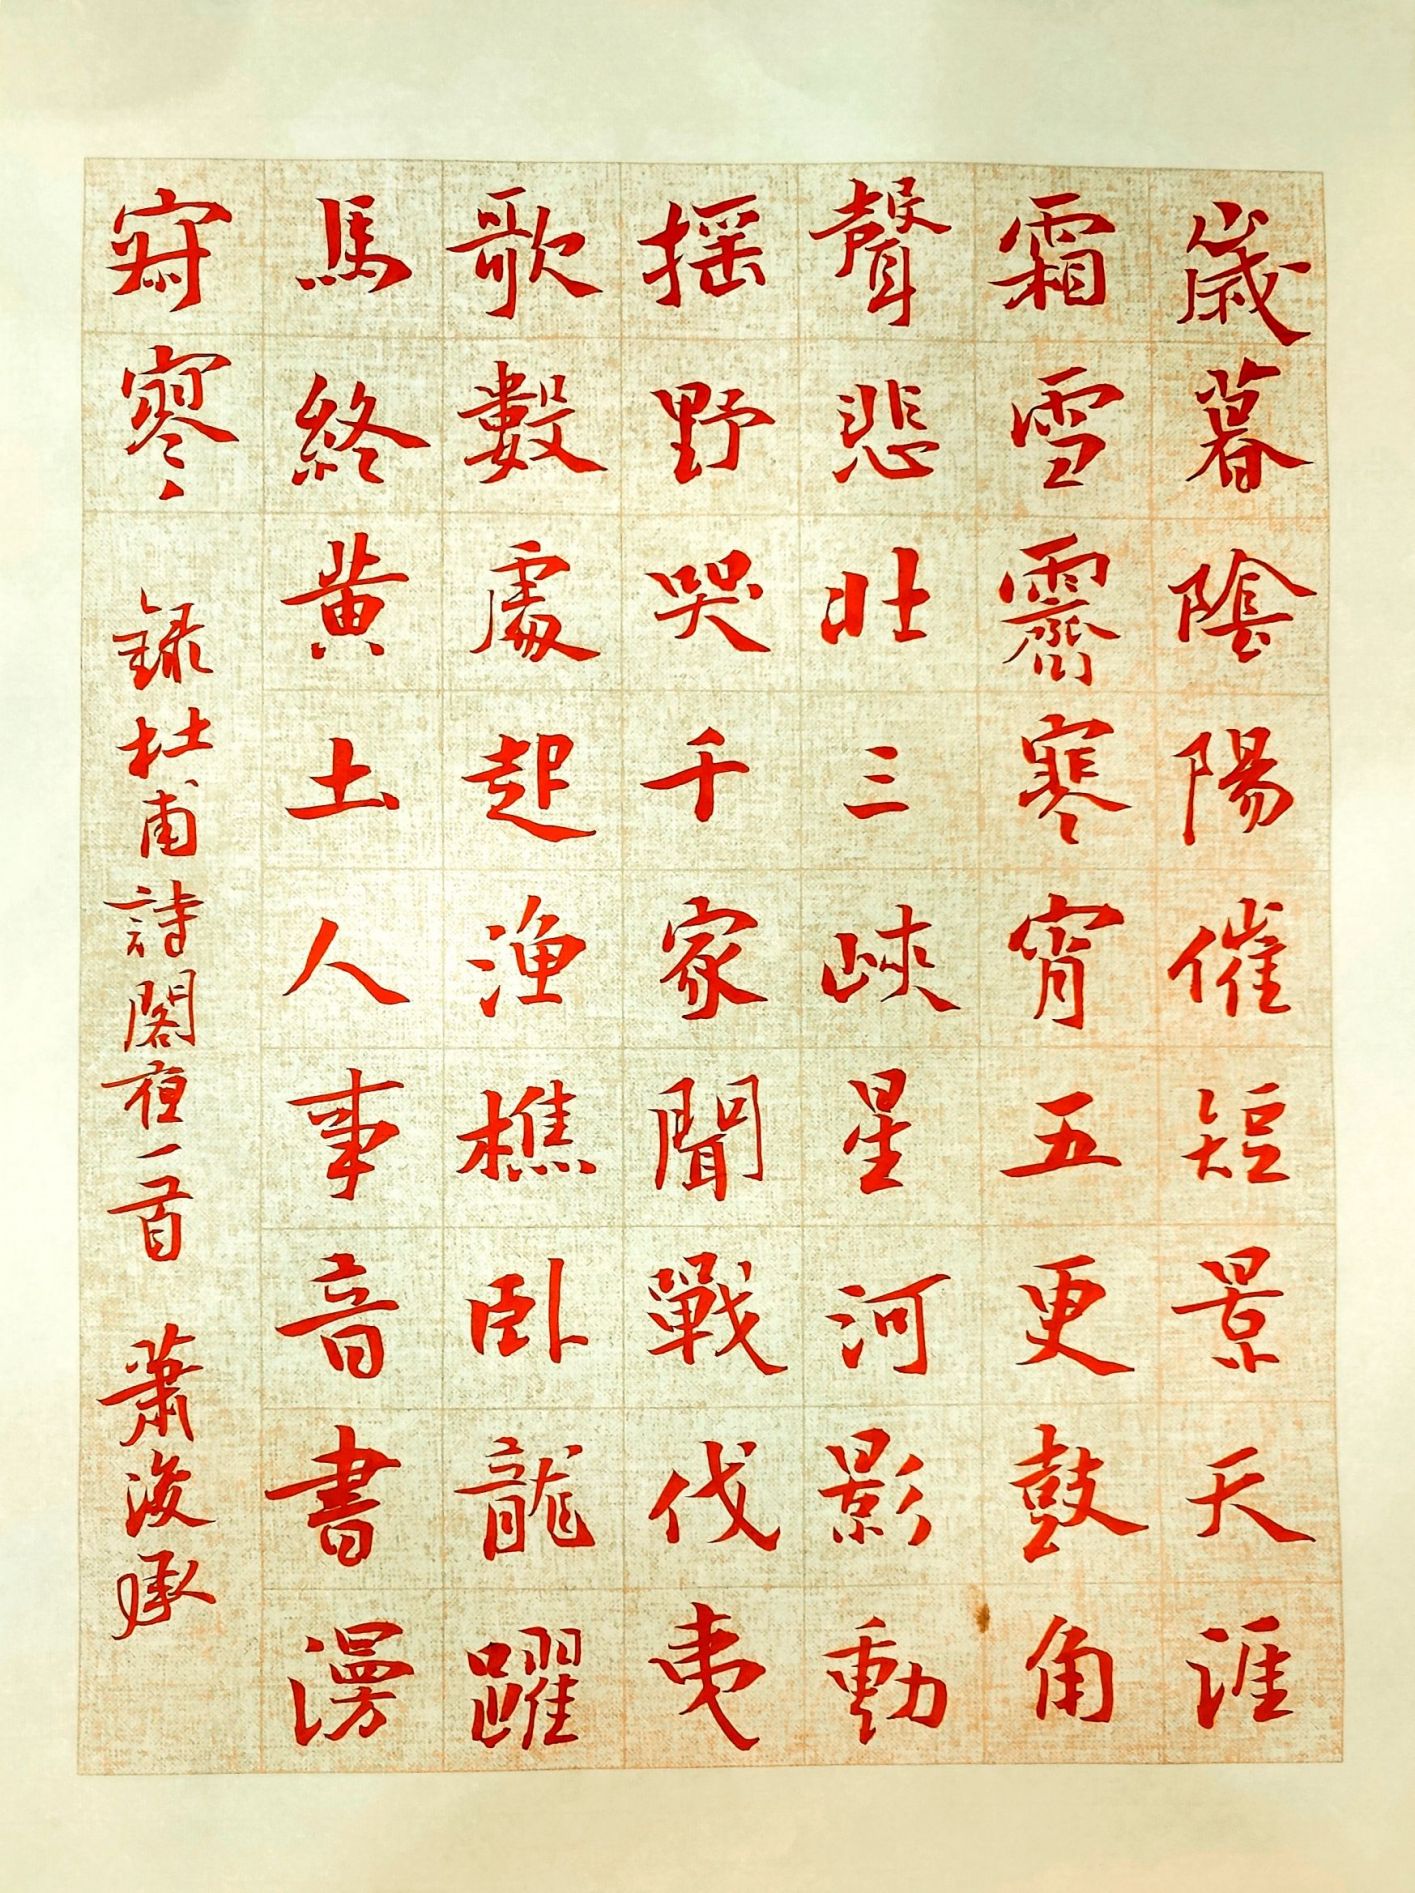 歲暮陰陽催短景天涯
霜雪霽寒宵五更鼓角
聲悲壯三峽星河影動
摇野哭千家聞戰伐夷
歌數處起漁樵卧龍躍
馬終黄土人事音書漫
寂寥 録杜甫詩閣夜一首 蕭浚承